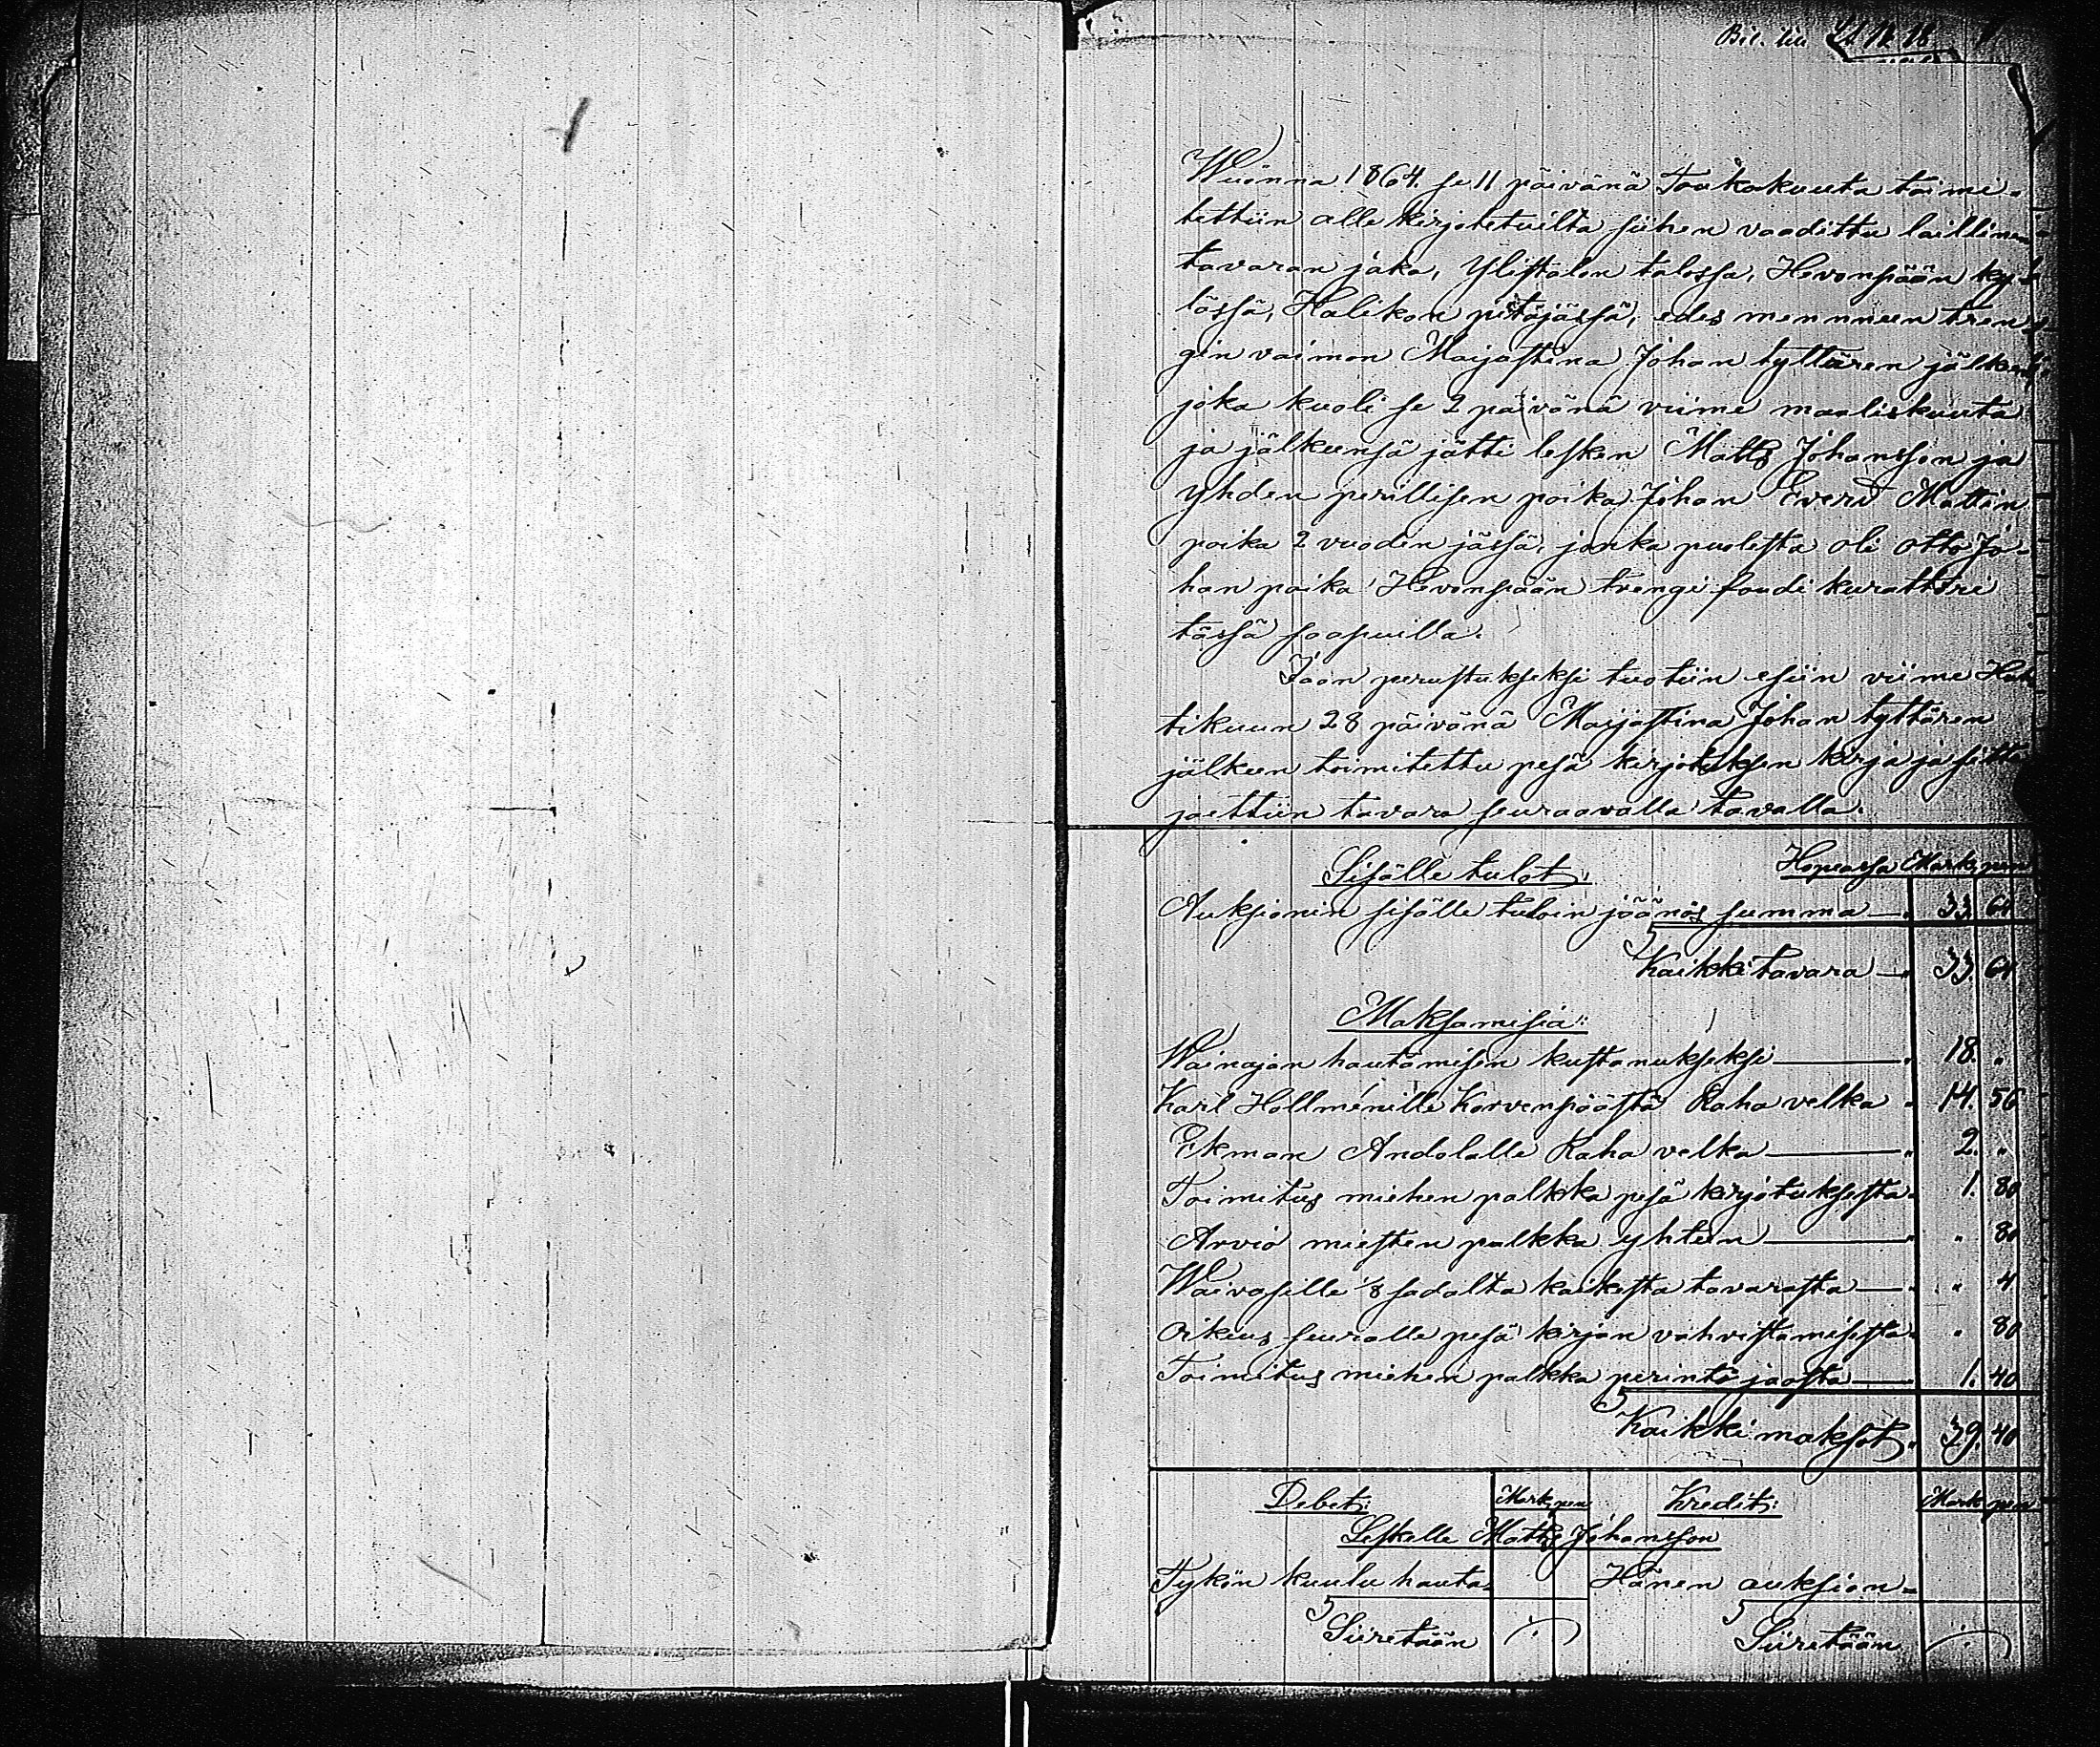 Bil. till
Wuonna 1864. se 11 päivänä Toukokuuta toimi-
tettiin alle kirjotetuilta siihen vaadittu laillinen
tavaran jako, Ylistalon talossa, Hevonpään ky-
lässä, Halikon pitäjässä, edes mennneen tren-
gin vaimon Maijastina Johan tyttären jälken,
joka kuoli se 2 päivänä viime maaliskuuta
ja jälkeensä jätti lesken Matts Johansson ja
yhden perillisen poika Johan Everd Mattin
poika 2 vuoden jässä, jonka puolesta oli Otto Jo-
han poika Hevonpään trengi foudi kurattore
tässä saapuilla.
Jaon perustukseksi tuotiin esiin viime Huh
tikuun 28 päivänä Maijastina Johan tyttären
jälkeen toimitettu pesä kirjotuksen kirja ja sitte
jaettiin tavara seuraavalla tavalla.
Sisälle tulot: Hopeassa Mark. pen
Auksionin sisälle tuloin jäänös summa 33. 64
Kaikki tavara 33. 64
Maksamisia:
Wainajan hautamisen kustanukseksi 18. "
Karl Hollmenille Korvenpäästä Raha velka " 14. 56
Ekman Andolalle Raha velka " 2. "
Toimitus miehen palkka pesä kirjotuksesta " 1. 80
Arvio miesten palkka yhtein " " 80
Waivasille 1/8 sadalta kaikesta tavarasta " " 4
Oikeus seuralle pesä kirjan vahvistamisesta " " 80
Toimitus miehen palkka perintö jaosta 1. 40
Kaikki maksot " 39. 40
Debet: Mark pen Kredit: Mark pen
Leskelle Matts Johansson
Tykön kuulu hauta- Hänen auksion-
Siiretään Siiretään